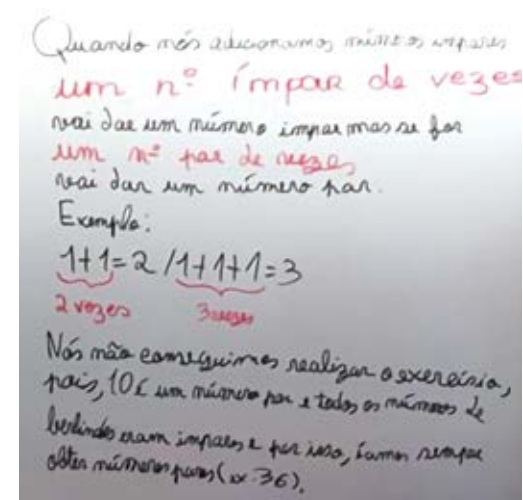 Quando nós adicionamos números impares
um nº ímpar de vezes
vai dar um número impar mas se for
um nº par de vezes
vai dar um número par.
Exemplo:
1+1=2 / 1+1+1=3
2 vezes 3 vezes
Nós não conseguimos realizar o exercício,
pois, 10 é um número par e todos os números de
berlindes eram impares e por isso, íamos sempre
obter números pares (ex: 36).